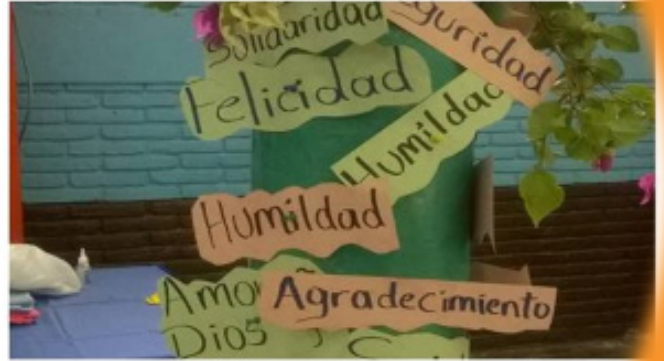 Solidaridad
Seguridad
Felicidad
Humildad
Humildad
Amor
Agradecimiento
Dios